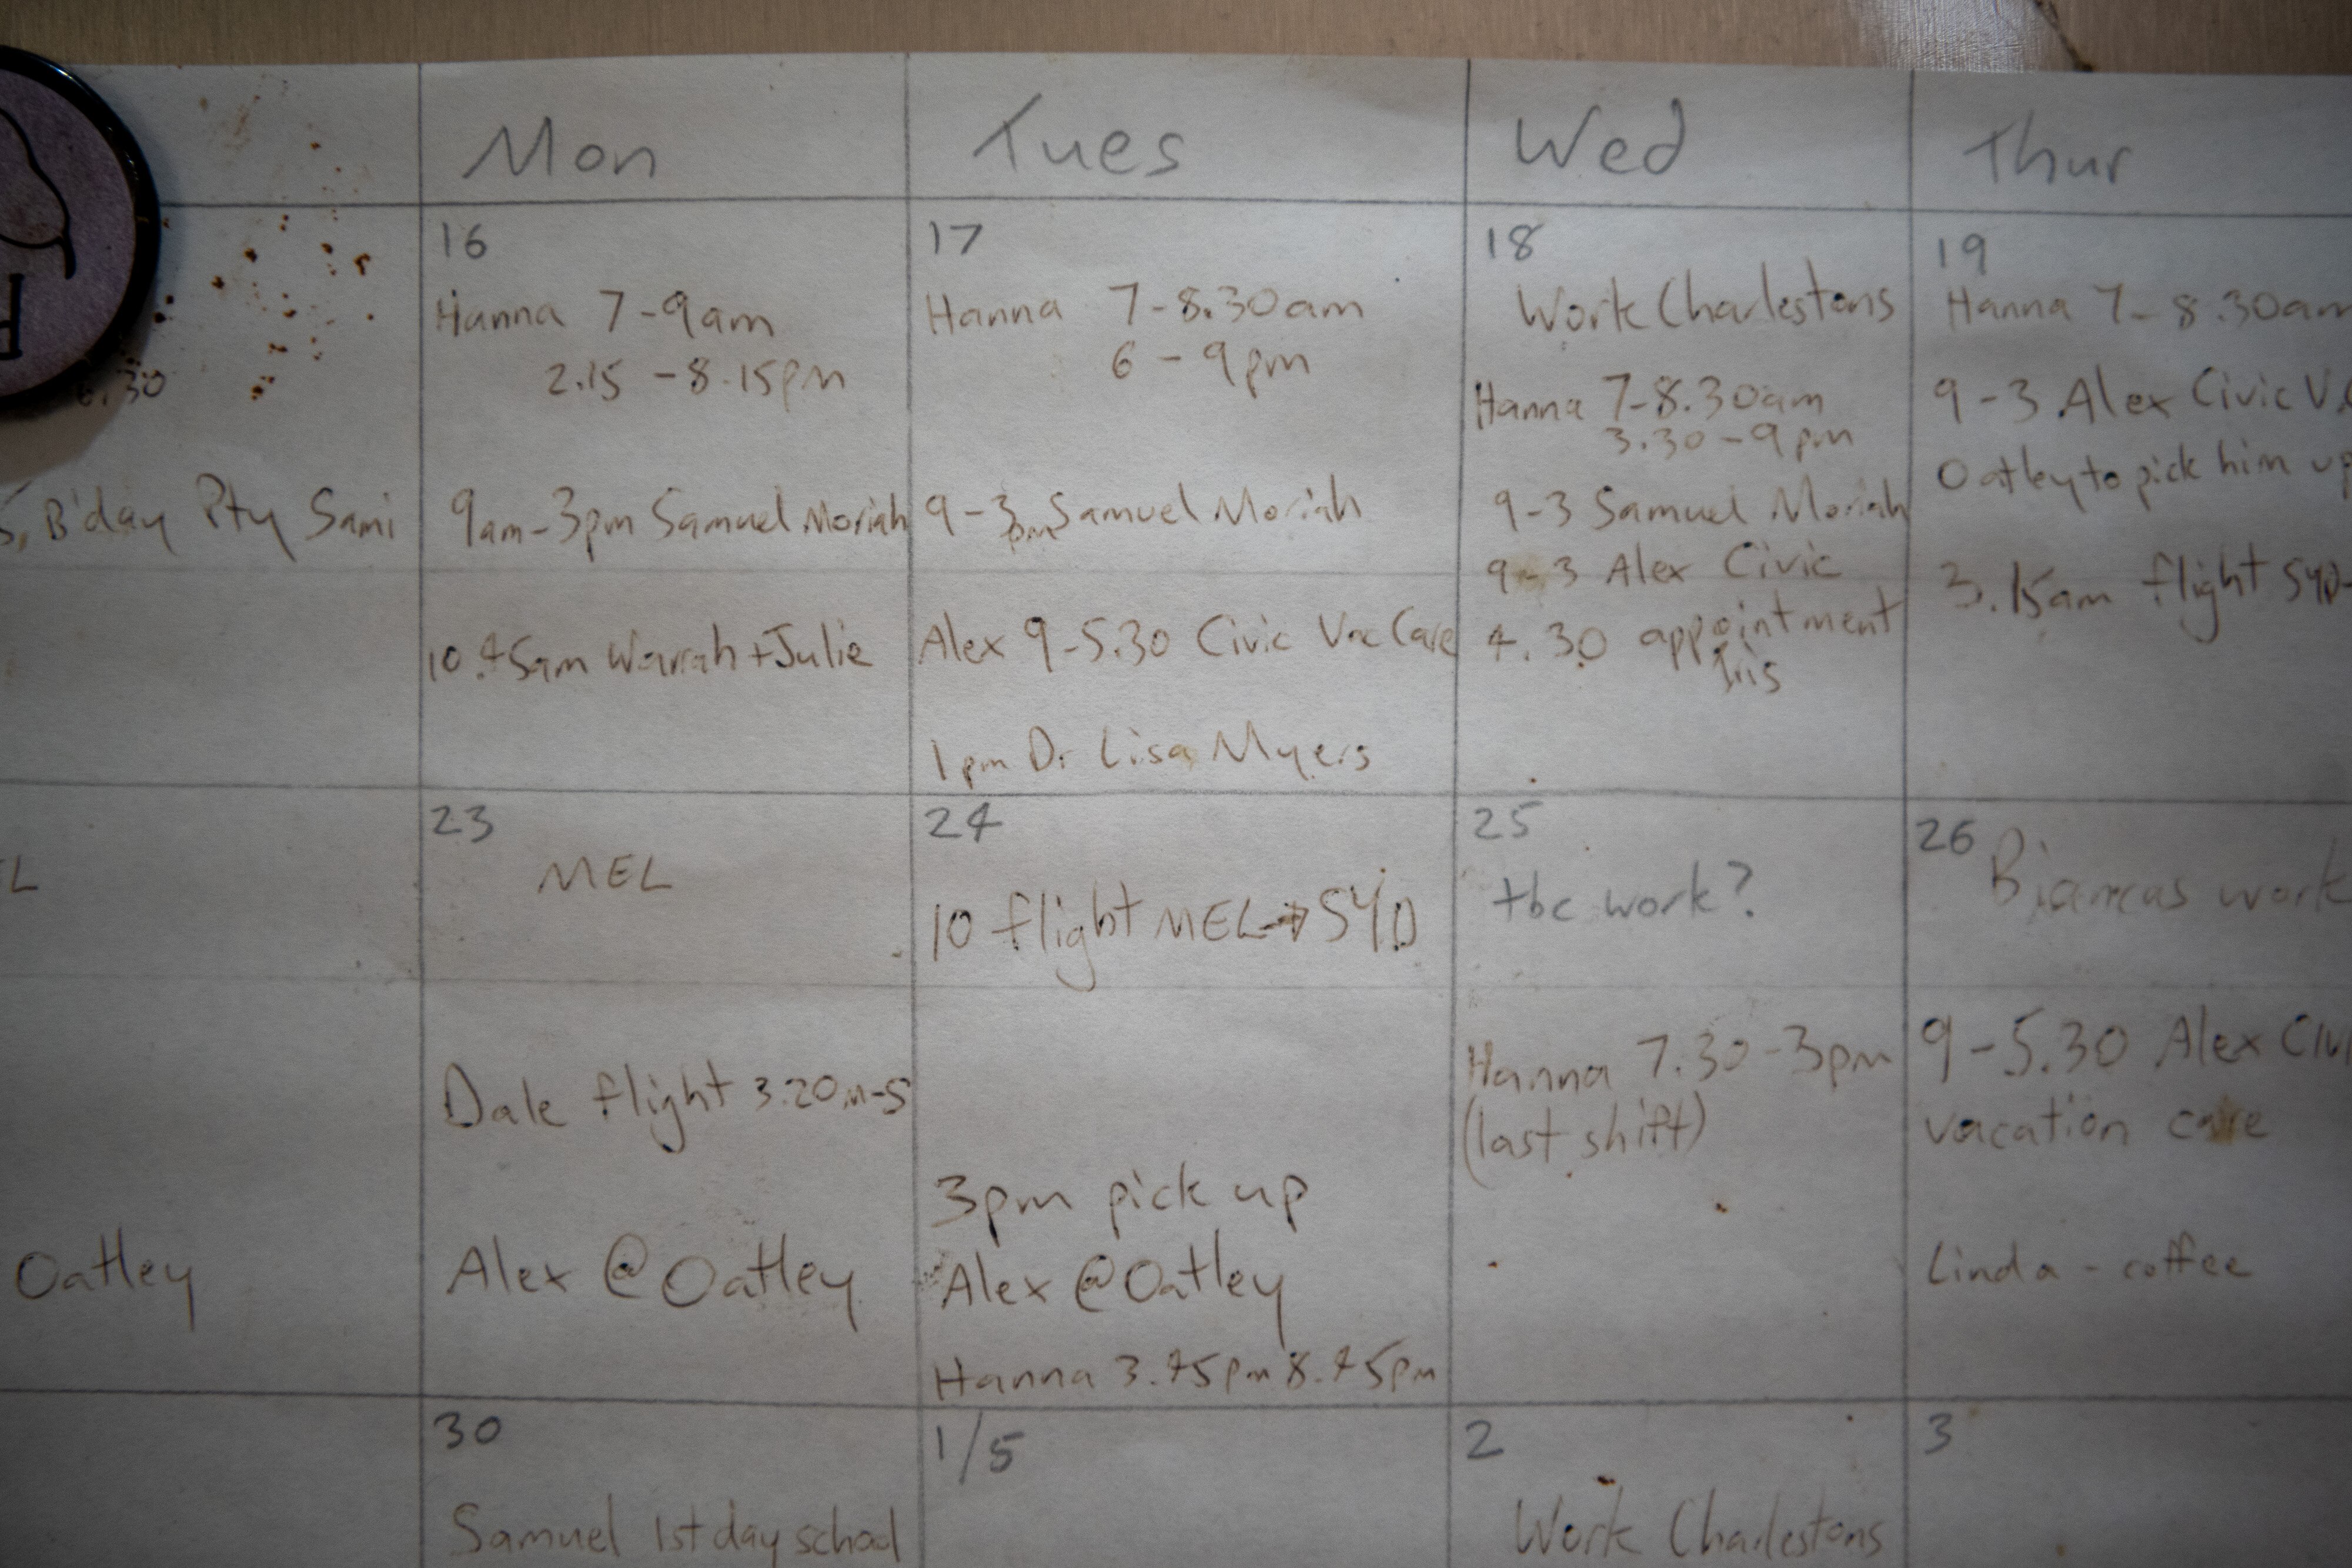 Mon
Tues
Wed
Thur
6.30
B'day Pty Sami
16
Hanna 7-9am
2.15 - 8.15pm
9am-3pm Samuel Moriah
10.45am Warrah + Julie
17
Hanna 7-8.30am
6 - 9pm
9-3pm Samuel Moriah
Alex 9-5.30 Civic Vac Care
1pm Dr Lisa Myers
18
Work Charlestons
Hanna 7-8.30am
3.30-9pm
9-3 Samuel Moriah
9-3 Alex Civic
4.30 appointment
Iris
19
Hanna 7-8.30am
9-3 Alex Civic
Oatley to pick him up
3.15am flight SYD-
Oatley
23
MEL
Dale flight 3.20 M-S
Alex @ Oatley
24
10 flight MEL→SYD
3pm pick up
Alex @ Oatley
Hanna 3.45pm 8.45pm
25
tbc work?
Hanna 7.30-3pm
(last shift)
26
Biancas work
9-5.30 Alex
vacation care
Linda - coffee
30
Samuel 1st day school
1/5
2
Work Charlestons
3